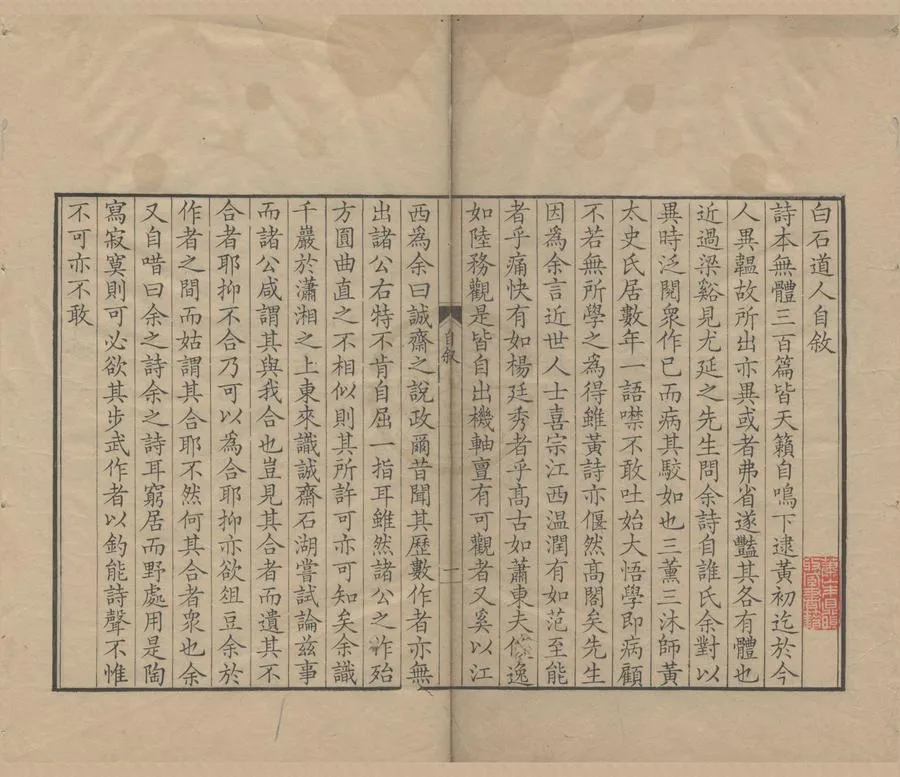 白石道人自敘
詩本無體三百篇皆天籟自鳴下逮黃初迄於今
人異韞故所出亦異或者弗省遂豔其各有體也
近過梁谿見尤延之先生問余詩自誰氏余對以
異時泛閱眾作已而病其駁如也三薰三沐師黃
太史氏居數年一語噤不敢吐始大悟學即病顧
不若無所學之為得雖黃詩亦偃然高閣矣先生
因為余言近世人士喜宗江西温潤有如范至能
者乎痛快有如楊廷秀者乎高古如蕭東夫俊逸
如陸務觀是皆自出機軸亶有可觀者又奚以江
自敘
一
西為余曰誠齋之說政爾昔聞其歷數作者亦無
出諸公右特不肯自屈一指耳雖然諸公之作殆
方圓曲直之不相似則其所許可亦可知矣余識
千巖於瀟湘之上東來識誠齋石湖嘗試論茲事
而諸公咸謂其與我合也豈見其合者而遺其不
合者耶抑不合乃可以為合耶抑亦欲俎豆余於
作者之間而姑謂其合耶不然何其合者眾也余
又自唶曰余之詩余之詩耳窮居而野處用是陶
寫寂寞則可必欲其步武作者以釣能詩聲不惟
不可亦不敢